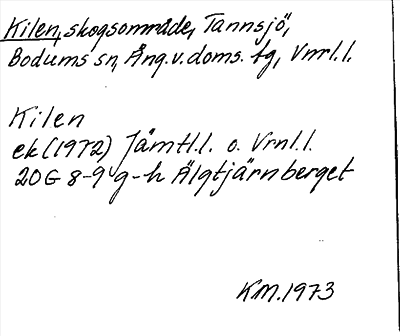 Kilen, skogsområde, Tannsjö,
Bodums sn, Ång.v.doms. tg, Vnrl.l.
Kilen
ek (1972) Jämtl.l. o. Vrnl.l.
20G 8-9 g-h Älgtjärnberget
KM.1973